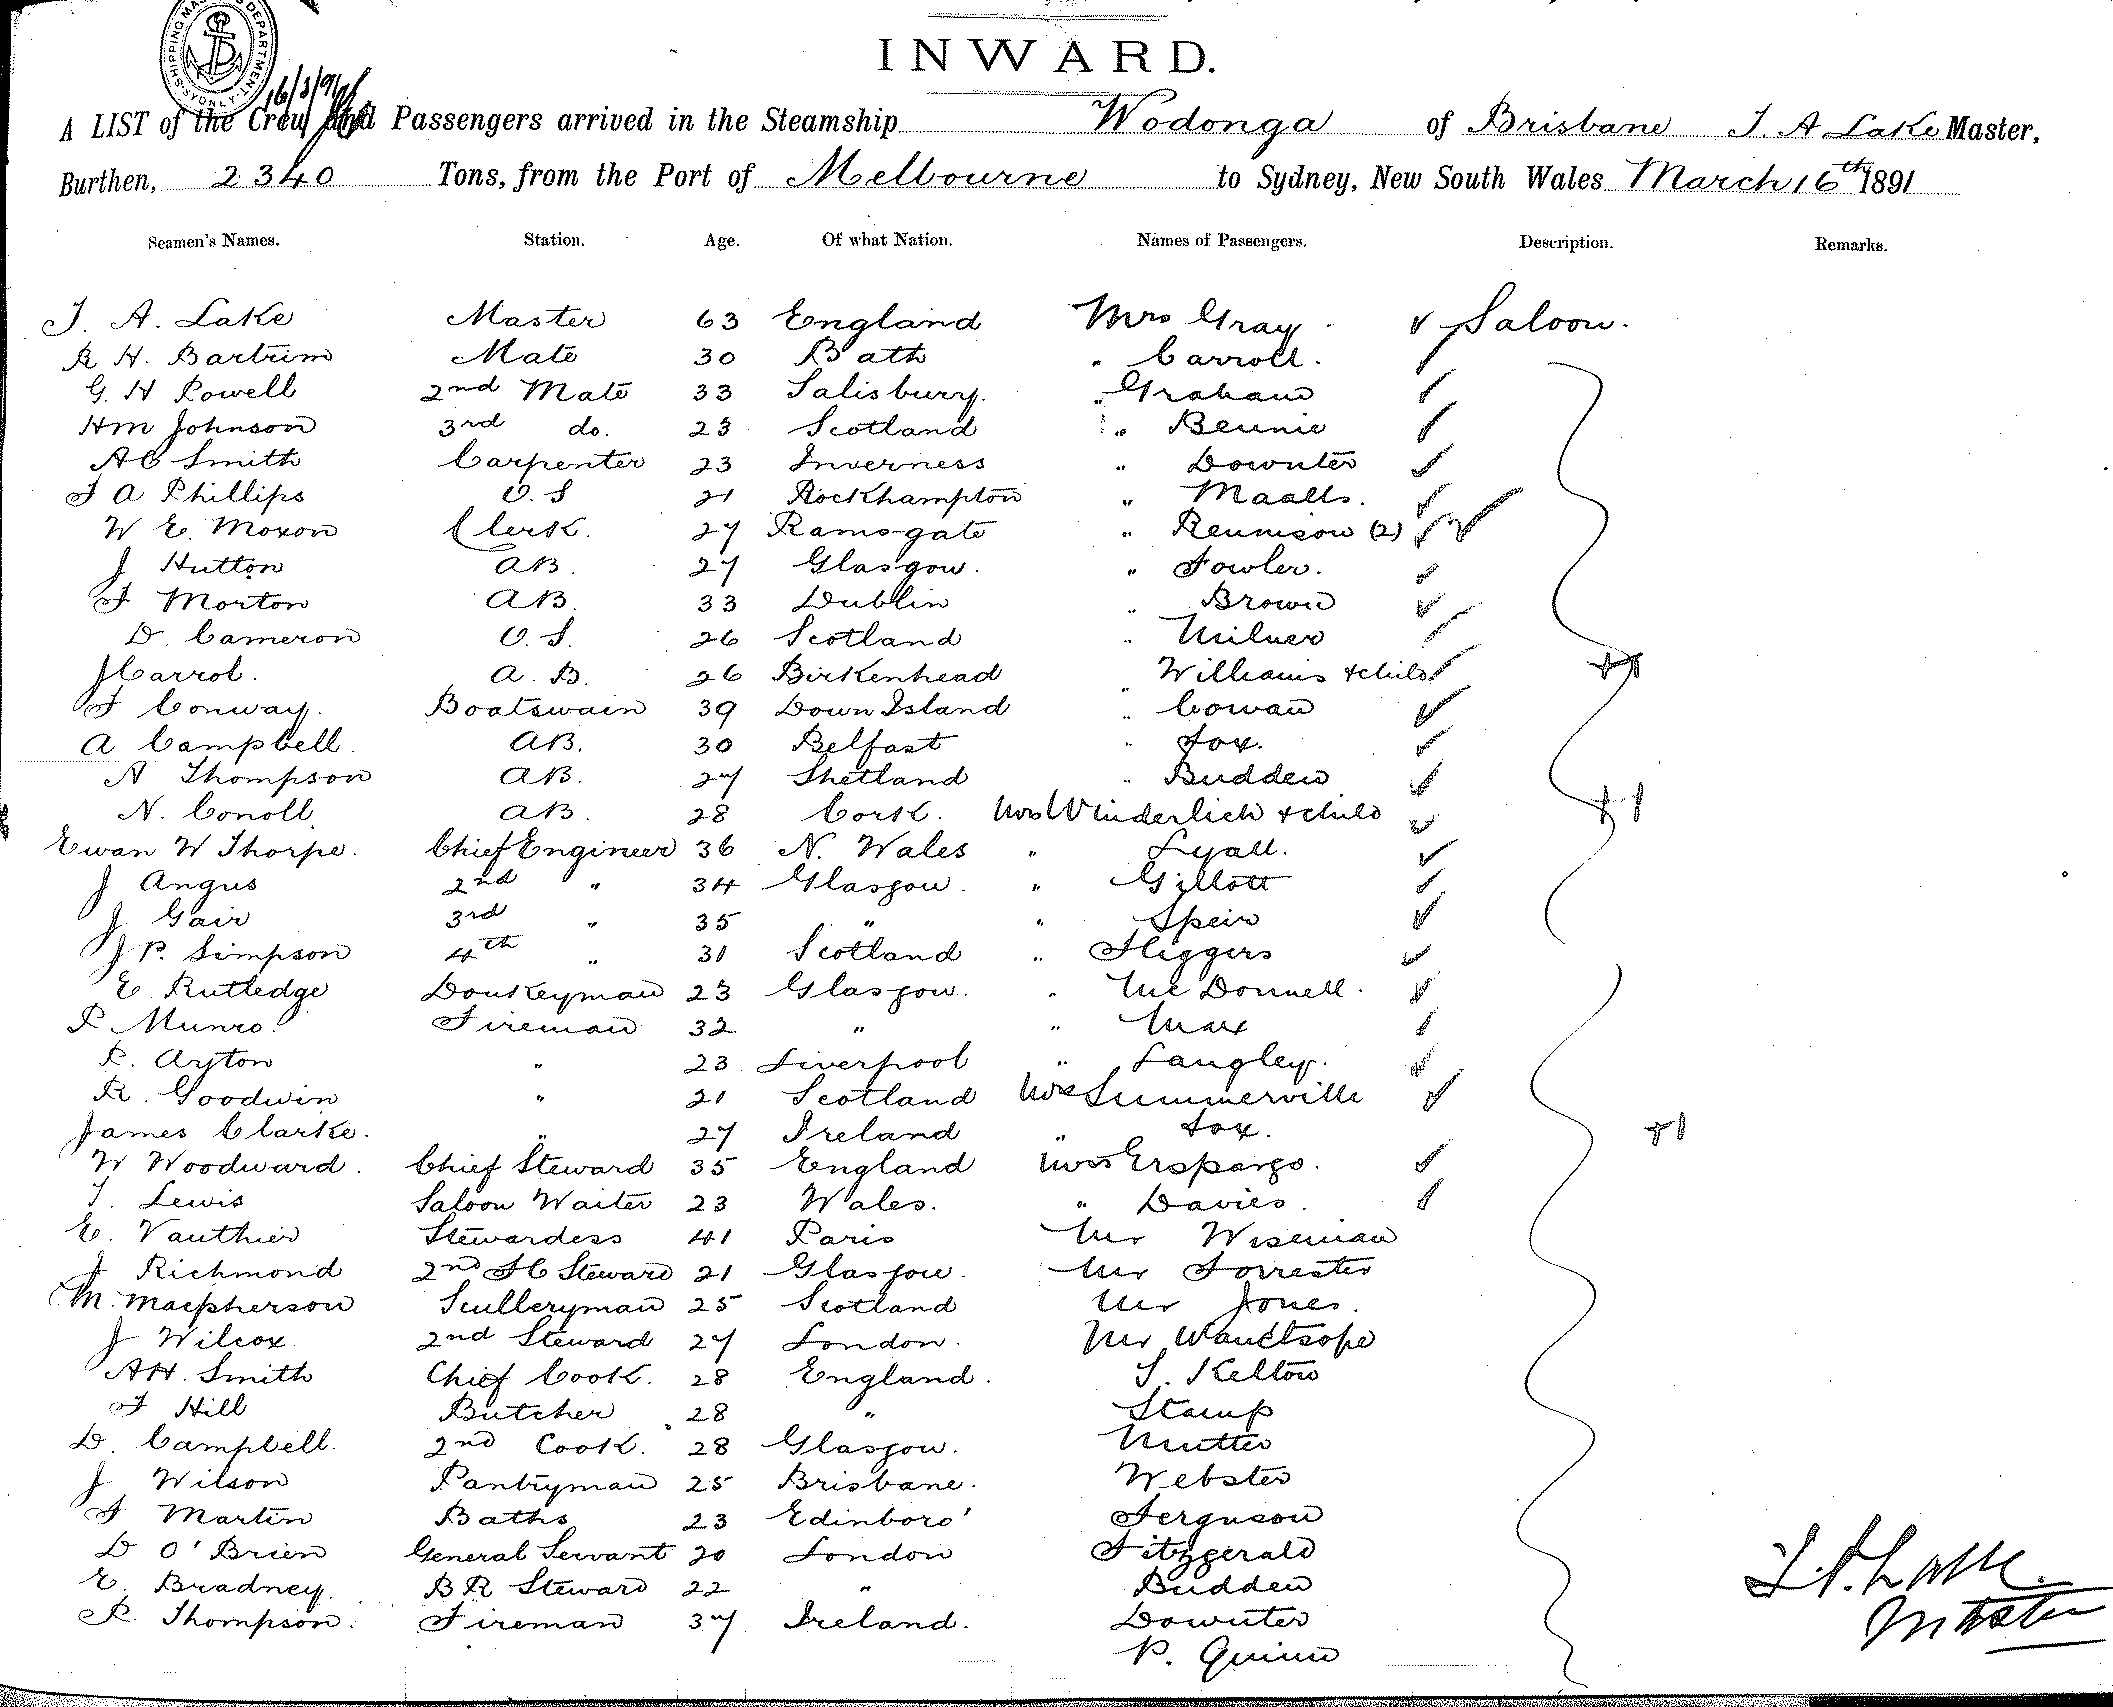 SHIPPING MASTER'S DEPARTMENT SYDNEY
16/3/91
INWARD.
A LIST of the Crew and Passengers arrived in the Steamship Wodonga of Brisbane J. A Lake Master,
Burthen, 2340 Tons, from the Port of Melbourne to Sydney, New South Wales March 16th 1891
Seamen's Names. Station. Age. Of what Nation. Names of Passengers. Description. Remarks.
J. A. Lake Master 63 England Mrs Gray Saloon.
R H. Bartrim Mate 30 Bath " Carroll.
G. H Powell 2nd Mate 33 Salisbury. " Graham
Hm Johnson 3rd do. 23 Scotland " Bennie
AC Smith Carpenter 23 Inverness " Downter
J A Phillips O.S 21 Rockhampton "
W E. Moxon Clerk. 27 Ramsgate " Rennison (2)
J Hutton AB. 27 Glasgow. " Fowler.
J Morton AB. 33 Dublin " Brown
D. Cameron O.S. 26 Scotland " Milner
J Carrol. A.B. 26 Birkenhead " Williams + child +1
J Conway. Boatswain 39 Down Island " Cowan
A Campbell. AB. 30 Belfast " Fox.
A Thompson AB. 27 Shetland " Budden
N. Conoll AB. 28 Cork. Mrs Winderlich + child +1
Ewan W Thorpe. Chief Engineer 36 N. Wales " Lyall.
J Angus 2nd " 34 Glasgow. " Gillott
J Gair 3rd " 35 " " Speir
J P. Simpson 4th " 31 Scotland " Higgers
E Rutledge Donkeyman 23 Glasgow. " McDonnell.
P Munro. Fireman 32 " " Max
P. Ayton " 23 Liverpool " Langley.
R. Goodwin " 21 Scotland Mrs Summerville
James Clarke. " 27 Ireland " Fox. +1
W Woodward. Chief Steward 35 England Miss
T. Lewis Saloon Waiter 23 Wales. " Davies
E. Vauthier Stewardess 41 Paris Mr Wiseman
J Richmond 2nd FC Steward 21 Glasgow. Mr Forrester
M. Macpherson Sculleryman 25 Scotland Mr Jones.
J Wilcox 2nd Steward 27 London. Mr
AH. Smith Chief Cook. 28 England. S. Kelton
J Hill Butcher 28 " Stamp
D. Campbell. 2nd Cook. 28 Glasgow. Mutter
J Wilson Pantryman 25 Brisbane. Webster
J Martin Baths 23 Edinboro' Ferguson
D O'Brien General Servant 20 London Fitzgerald
E. Bradney. BR Steward 22 " Budden
R. Thompson. Fireman 37 Ireland. Downter
P. Quinn
J A. Lake.
Master